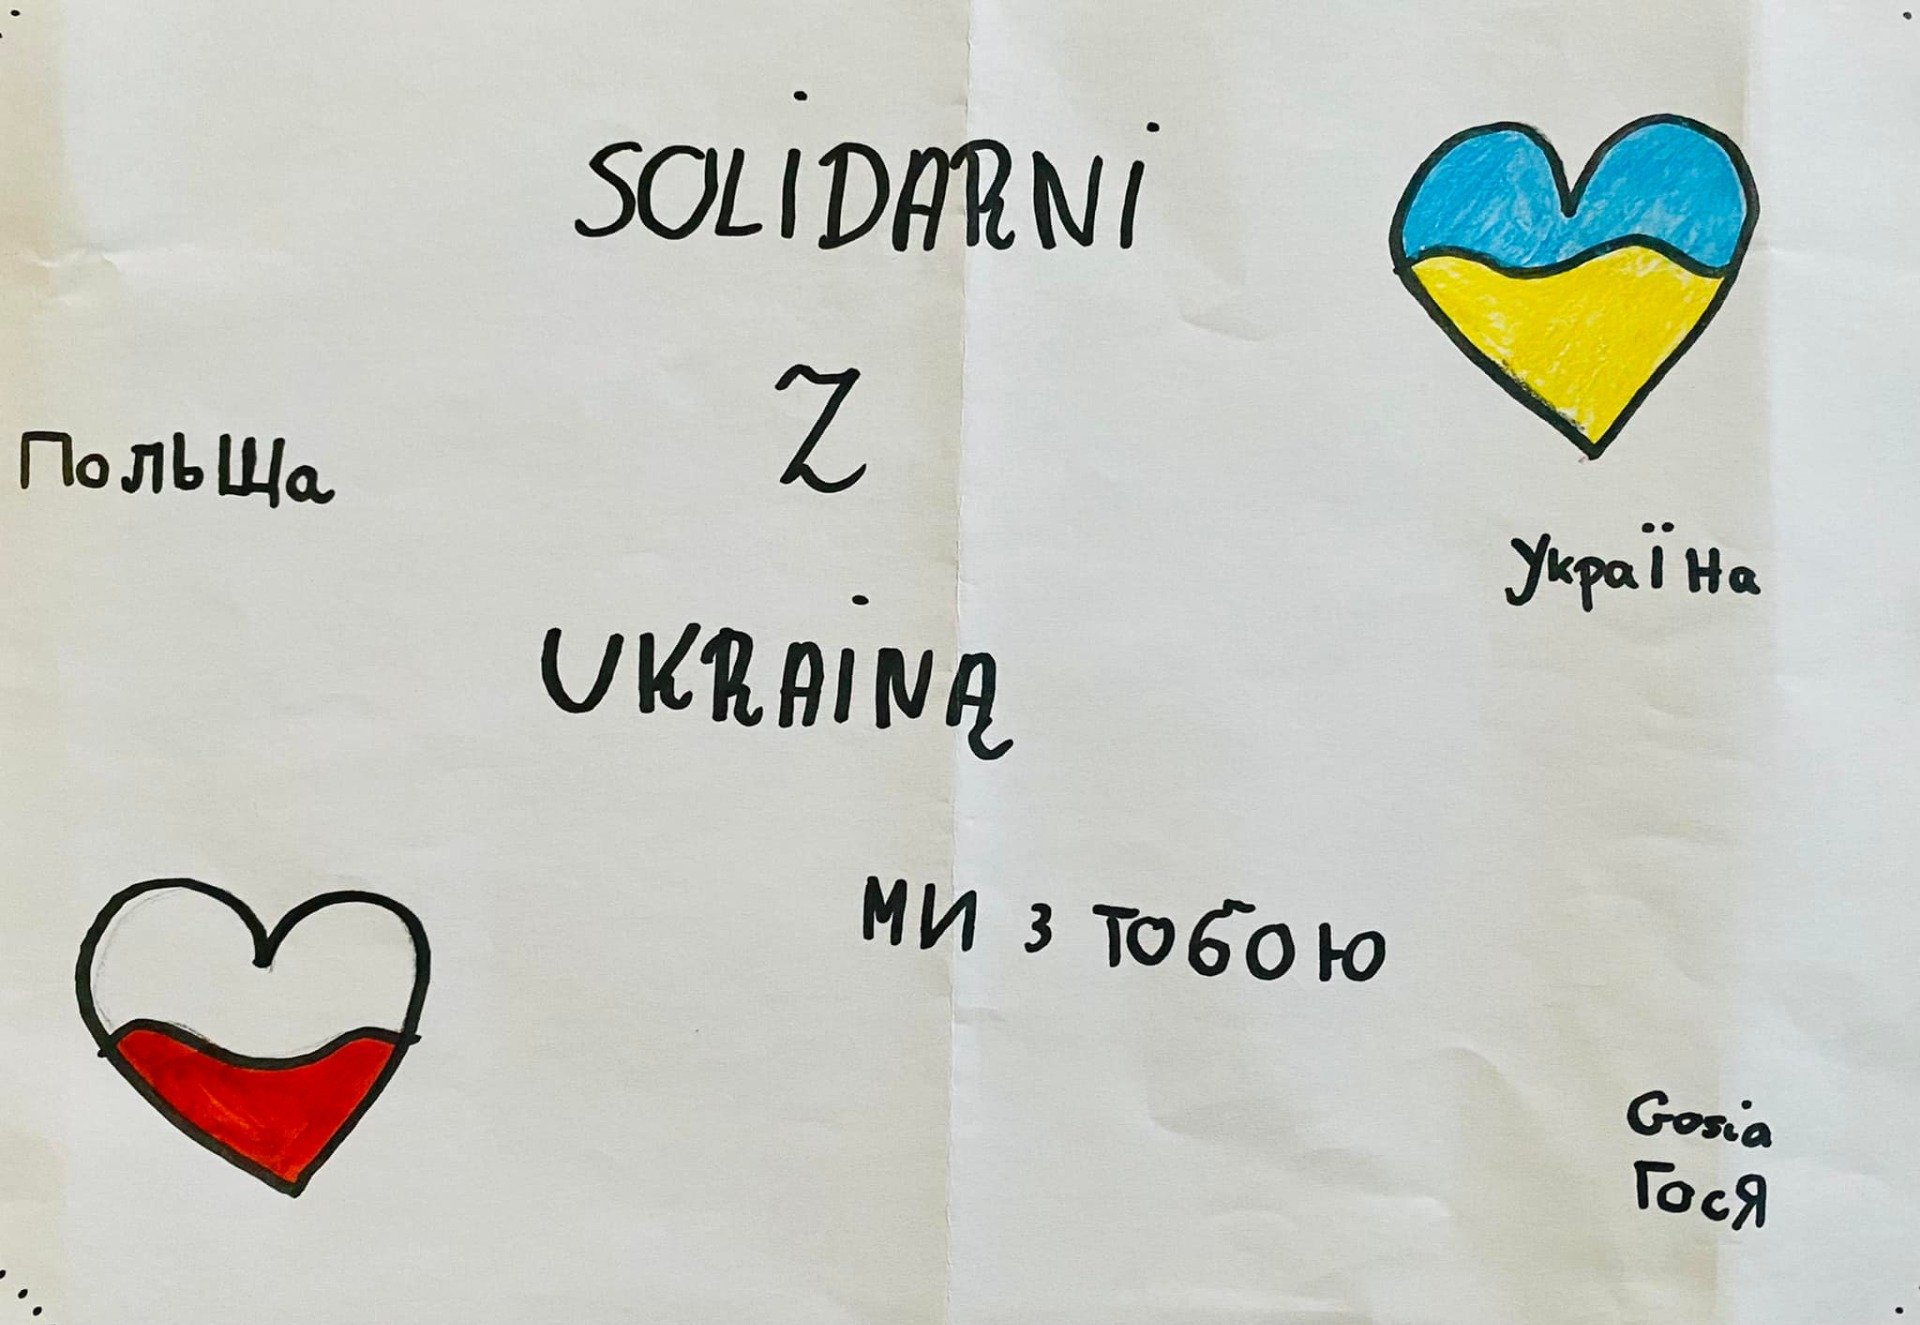 SOLIDARNI
Z
ПольЩа
УкраЇна
UKRAINĄ
МИ З ТОБОЮ
Gosia
ГосЯ